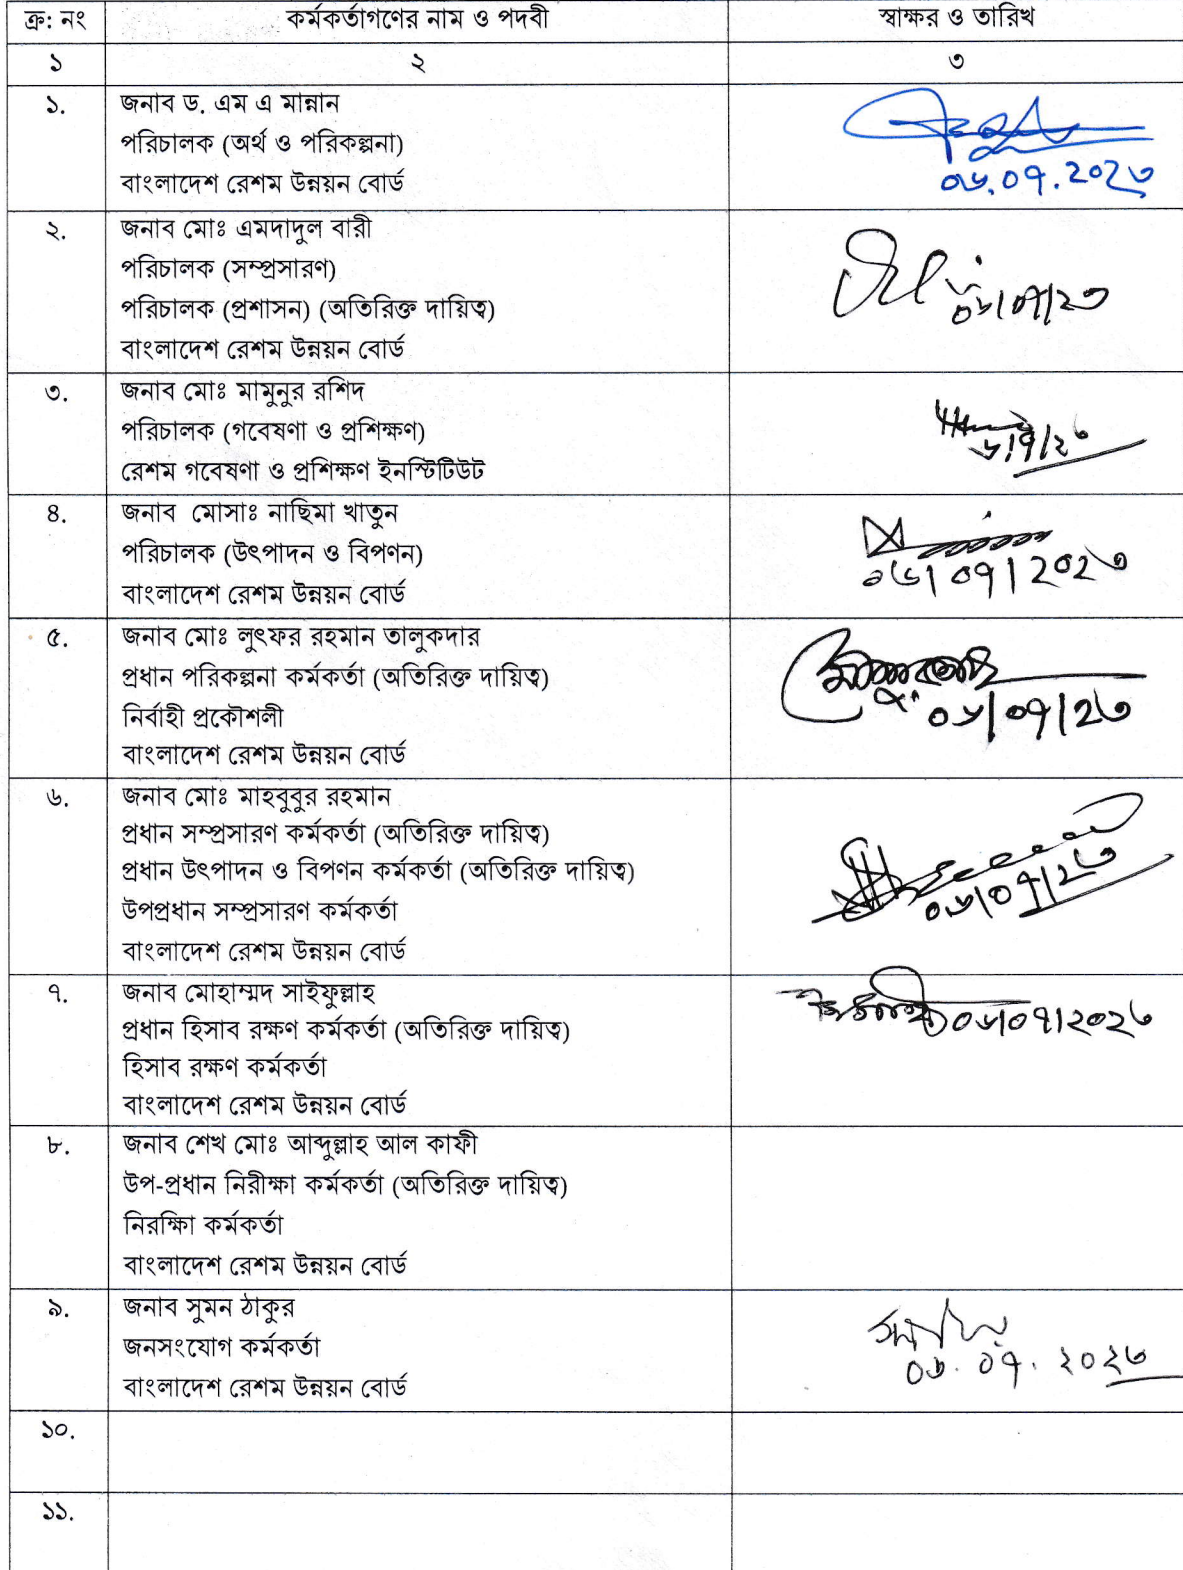 ক্র: নং কর্মকর্তাগণের নাম ও পদবী স্বাক্ষর ও তারিখ
১ ২ ৩
১. জনাব ড. এম এ মান্নান
পরিচালক (অর্থ ও পরিকল্পনা)
বাংলাদেশ রেশম উন্নয়ন বোর্ড
০৬.০৭.২০২৩
২. জনাব মোঃ এমদাদুল বারী
পরিচালক (সম্প্রসারণ)
পরিচালক (প্রশাসন) (অতিরিক্ত দায়িত্ব)
বাংলাদেশ রেশম উন্নয়ন বোর্ড
০৬/০৭/২৩
৩. জনাব মোঃ মামুনুর রশিদ
পরিচালক (গবেষণা ও প্রশিক্ষণ)
রেশম গবেষণা ও প্রশিক্ষণ ইনস্টিটিউট
৬/৭/২৩
৪. জনাব মোসাঃ নাছিমা খাতুন
পরিচালক (উৎপাদন ও বিপণন)
বাংলাদেশ রেশম উন্নয়ন বোর্ড
০৬/০৭/২০২৩
৫. জনাব মোঃ লুৎফর রহমান তালুকদার
প্রধান পরিকল্পনা কর্মকর্তা (অতিরিক্ত দায়িত্ব)
নির্বাহী প্রকৌশলী
বাংলাদেশ রেশম উন্নয়ন বোর্ড
০৬/০৭/২৩
৬. জনাব মোঃ মাহবুবুর রহমান
প্রধান সম্প্রসারণ কর্মকর্তা (অতিরিক্ত দায়িত্ব)
প্রধান উৎপাদন ও বিপণন কর্মকর্তা (অতিরিক্ত দায়িত্ব)
উপপ্রধান সম্প্রসারণ কর্মকর্তা
বাংলাদেশ রেশম উন্নয়ন বোর্ড
০৬/০৭/২৩
৭. জনাব মোহাম্মদ সাইফুল্লাহ
প্রধান হিসাব রক্ষণ কর্মকর্তা (অতিরিক্ত দায়িত্ব)
হিসাব রক্ষণ কর্মকর্তা
বাংলাদেশ রেশম উন্নয়ন বোর্ড
০৬/০৭/২০২৩
৮. জনাব শেখ মোঃ আব্দুল্লাহ আল কাফী
উপ-প্রধান নিরীক্ষা কর্মকর্তা (অতিরিক্ত দায়িত্ব)
নিরক্ষিা কর্মকর্তা
বাংলাদেশ রেশম উন্নয়ন বোর্ড
৯. জনাব সুমন ঠাকুর
জনসংযোগ কর্মকর্তা
বাংলাদেশ রেশম উন্নয়ন বোর্ড
০৬.০৭.২০২৩
১০.
১১.